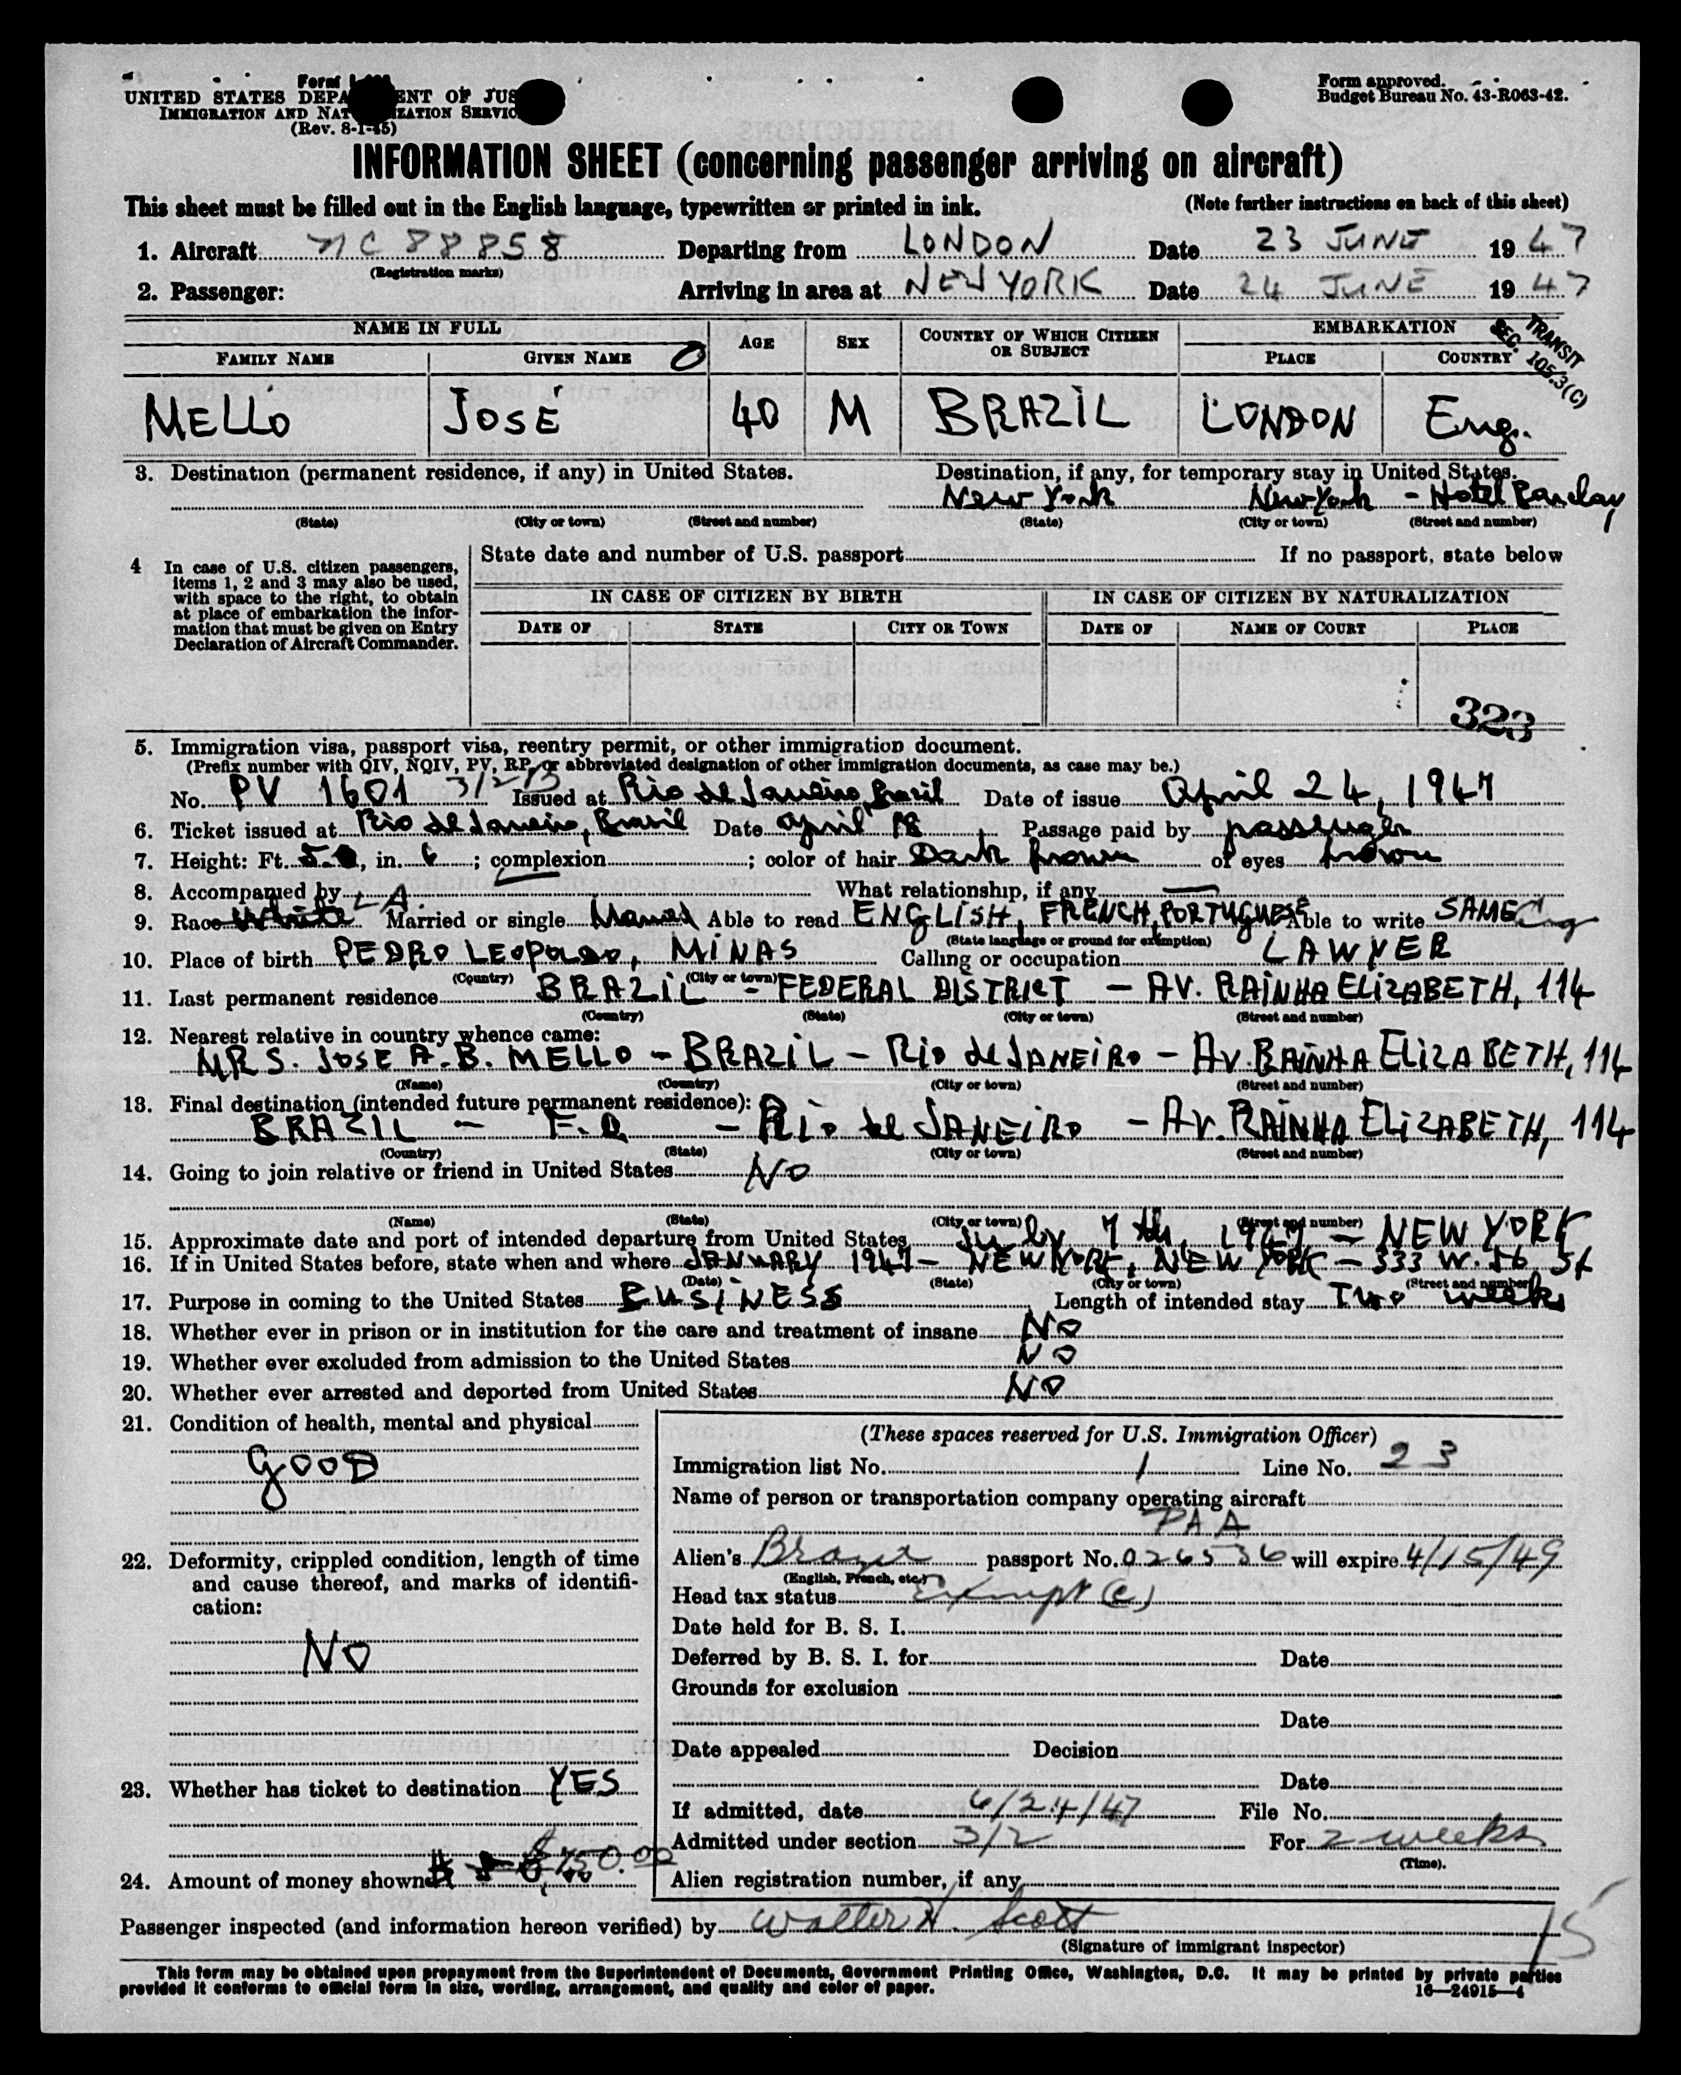 Form
UNITED STATES DEPARTMENT OF JUS
IMMIGRATION AND NATURALIZATION SERVIC
(Rev. 8-1-45)
Form approved.
Budget Bureau No. 43-R063-42.
INFORMATION SHEET (concerning passenger arriving on aircraft)
This sheet must be filled out in the English language, typewritten or printed in ink. (Note further instructions on back of this sheet)
1. Aircraft NC 88858 Departing from LONDON Date 23 JUNE 1947
(Registration marks)
2. Passenger: Arriving in area at NEW YORK Date 24 JUNE 1947
NAME IN FULL AGE SEX COUNTRY OF WHICH CITIZEN OR SUBJECT EMBARKATION
FAMILY NAME GIVEN NAME PLACE COUNTRY
TRANSIT
SEC. 105.3(C)
MELLO JOSÉ 40 M BRAZIL LONDON Eng.
3. Destination (permanent residence, if any) in United States. Destination, if any, for temporary stay in United States.
New York New York - Hotel Barclay
(State) (City or town) (Street and number) (State) (City or town) (Street and number)
4 In case of U.S. citizen passengers,
items 1, 2 and 3 may also be used,
with space to the right, to obtain
at place of embarkation the infor-
mation that must be given on Entry
Declaration of Aircraft Commander.
State date and number of U.S. passport If no passport, state below
IN CASE OF CITIZEN BY BIRTH IN CASE OF CITIZEN BY NATURALIZATION
DATE OF STATE CITY OR TOWN DATE OF NAME OF COURT PLACE
323
5. Immigration visa, passport visa, reentry permit, or other immigration document.
(Prefix number with QIV, NQIV, PV, RP, or abbreviated designation of other immigration documents, as case may be.)
No. PV 1601 3/2 B Issued at Rio de Janeiro, Brazil Date of issue April 24, 1947
6. Ticket issued at Rio de Janeiro, Brasil Date april 18 Passage paid by passenger
7. Height: Ft. 5 , in. 6 ; complexion ; color of hair Dark brown of eyes brown
8. Accompanied by What relationship, if any —
9. Race White L A. Married or single Married Able to read ENGLISH, FRENCH, PORTUGUESE Able to write SAME Eng
(State language or ground for exemption)
10. Place of birth PEDRO LEOPOLDO, MINAS Calling or occupation LAWYER
(Country) (City or town)
11. Last permanent residence BRAZIL - FEDERAL DISTRICT - AV. RAINHA ELIZABETH, 114
(Country) (State) (City or town) (Street and number)
12. Nearest relative in country whence came:
MRS. JOSE A.B. MELLO - BRAZIL - RIO de JANEIRO - AV. RAINHA ELIZABETH, 114
(Name) (Country) (City or town) (Street and number)
13. Final destination (intended future permanent residence):
BRAZIL - F.D. - RIO de JANEIRO - AV. RAINHA ELIZABETH, 114
(Country) (State) (City or town) (Street and number)
14. Going to join relative or friend in United States NO
(Name) (State) (City or town) (Street and number)
15. Approximate date and port of intended departure from United States July 7th, 1947 - NEW YORK
16. If in United States before, state when and where JANUARY 1947 - NEW YORK, NEW YORK - 333 W. 56 St
(Date) (State) (City or town) (Street and number)
17. Purpose in coming to the United States BUSINESS Length of intended stay Two weeks
18. Whether ever in prison or in institution for the care and treatment of insane NO
19. Whether ever excluded from admission to the United States NO
20. Whether ever arrested and deported from United States NO
21. Condition of health, mental and physical
GOOD
22. Deformity, crippled condition, length of time
and cause thereof, and marks of identifi-
cation:
NO
23. Whether has ticket to destination YES
24. Amount of money shown $750.00
(These spaces reserved for U.S. Immigration Officer)
Immigration list No. 1 Line No. 23
Name of person or transportation company operating aircraft
PAA
Alien's Brazil passport No. 026536 will expire 4/15/49
(English, French, etc.)
Head tax status Exempt (c)
Date held for B. S. I.
Deferred by B. S. I. for Date
Grounds for exclusion
Date
Date appealed Decision
Date
If admitted, date 6/24/47 File No.
Admitted under section 3/2 For 2 weeks
(Time).
Alien registration number, if any
Passenger inspected (and information hereon verified) by Walter H. Scott
(Signature of immigrant inspector)
15
This form may be obtained upon prepayment from the Superintendent of Documents, Government Printing Office, Washington, D.C. It may be printed by private parties
provided it conforms to official form in size, wording, arrangement, and quality and color of paper.
16—24915—4